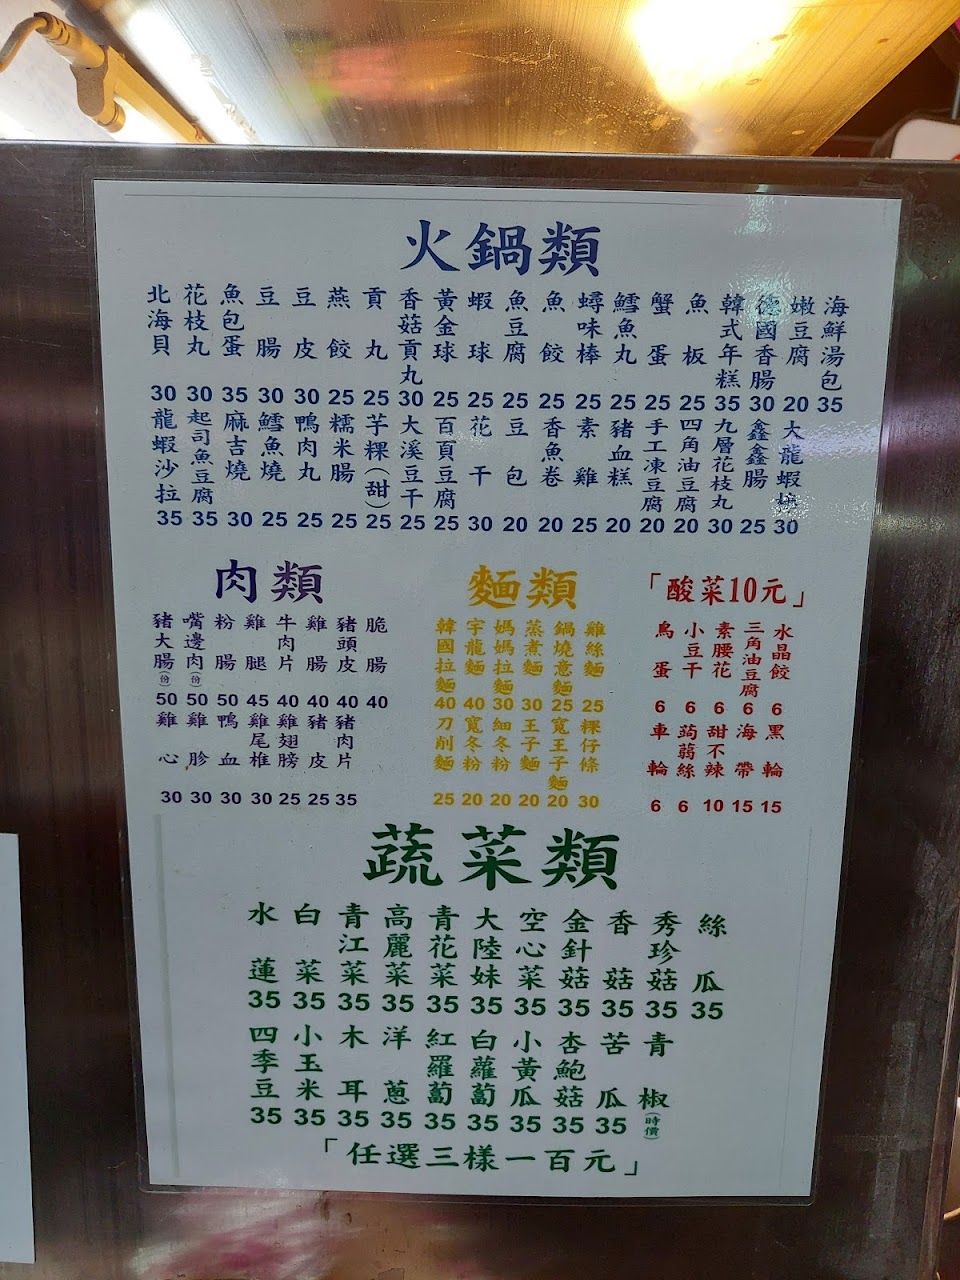 火鍋類
北海貝 30
花枝丸 30
魚包蛋 35
豆腸 30
豆皮 30
燕餃 25
貢丸 25
香菇貢丸 30
黃金球 25
蝦球 25
魚豆腐 25
魚餃 25
蟳味棒 25
鱈魚丸 25
蟹蛋 25
魚板 25
韓式年糕 35
德國香腸 30
嫩豆腐 20
海鮮湯包 35
龍蝦沙拉 35
起司魚豆腐 35
麻吉燒 30
鱈魚燒 25
鴨肉丸 25
糯米腸 25
芋粿(甜) 25
大溪豆干 25
百頁豆腐 25
花干 30
豆包 20
香魚卷 20
素雞 25
豬血糕 20
手工凍豆腐 20
四角油豆腐 20
九層花枝丸 30
鑫鑫腸 25
大龍蝦 30
肉類
豬大腸(份) 50
嘴邊肉(份) 50
粉腸 50
雞腿 45
牛肉片 40
雞腸 40
豬頭皮 40
脆腸 40
雞心 30
雞胗 30
鴨血 30
雞尾椎 30
雞翅膀 25
豬皮 25
豬肉片 35
麵類
韓國拉麵 40
宇龍麵 40
媽媽拉麵 30
蒸煮麵 30
鍋燒意麵 25
雞絲麵 25
刀削麵 25
寬冬粉 20
細冬粉 20
王子麵 20
寬王子麵 20
粿仔條 30
「酸菜10元」
鳥蛋 6
小豆干 6
素腰花 6
三角油豆腐 6
水晶餃 6
車輪 6
蒟蒻絲 6
甜不辣 10
海帶 15
黑輪 15
蔬菜類
水蓮 35
白菜 35
青江菜 35
高麗菜 35
青花菜 35
大陸妹 35
空心菜 35
金針菇 35
香菇 35
秀珍菇 35
絲瓜 35
四季豆 35
小玉米 35
木耳 35
洋蔥 35
紅羅蔔 35
白蘿蔔 35
小黃瓜 35
杏鮑菇 35
苦瓜 35
青椒(時價)
「任選三樣一百元」